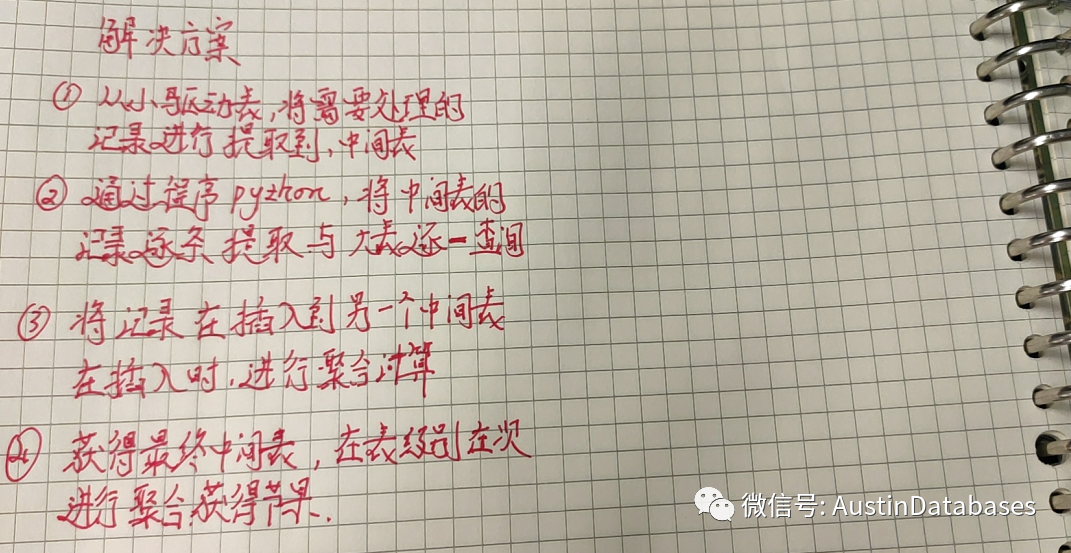 解决方案
① 从小驱动表,将需要处理的
记录进行提取到,中间表
② 通过程序python,将中间表的
记录逐条提取与大表逐一查询
③ 将记录在插入到另一个中间表
在插入时,进行聚合计算
④ 获得最终中间表,在表级别在次
进行聚合获得结果.
微信号: AustinDatabases